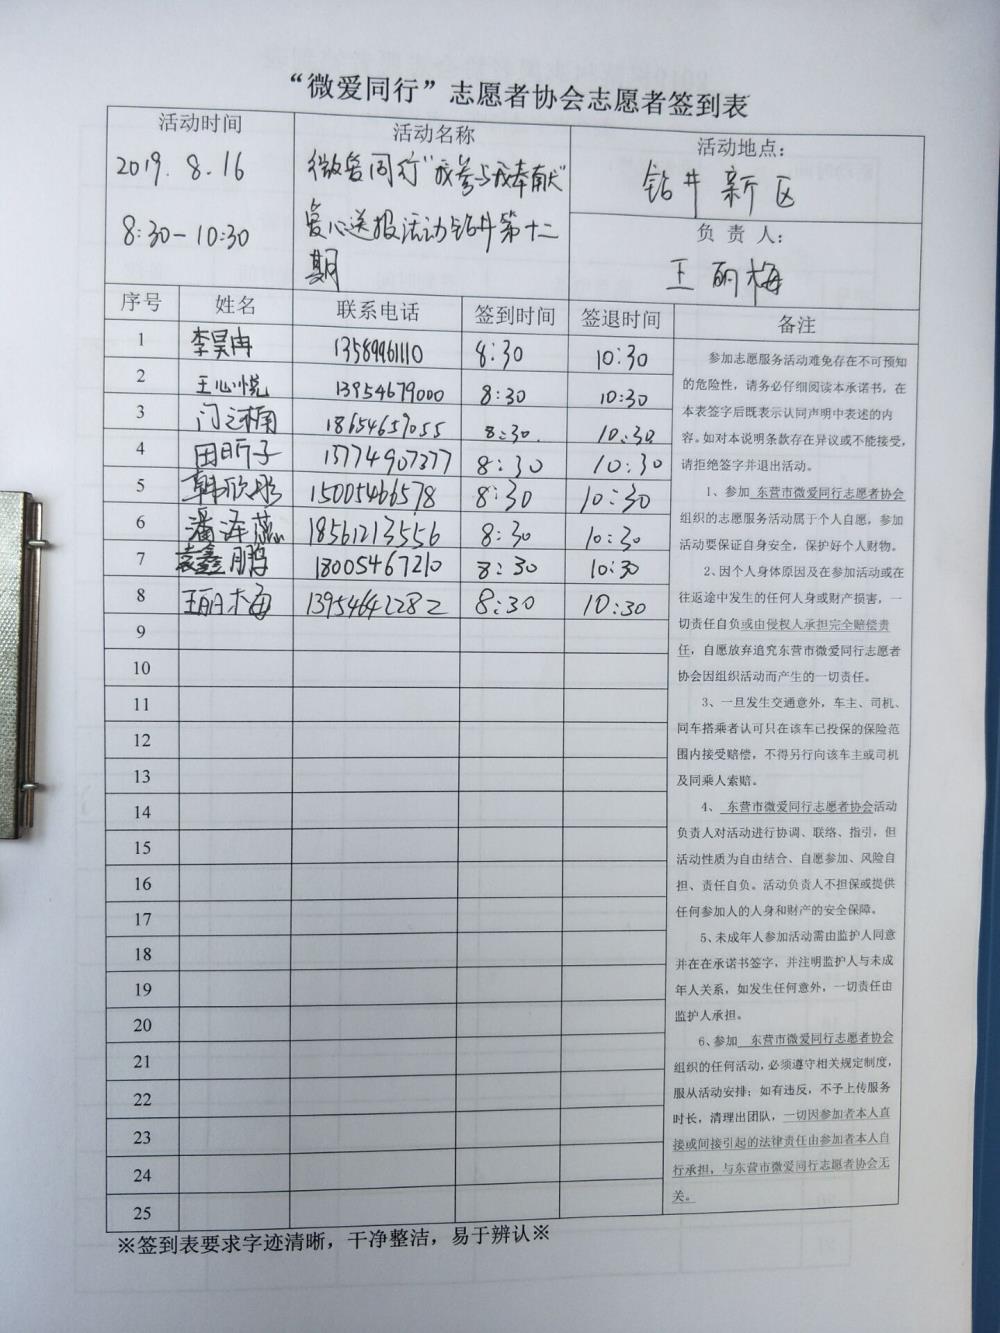 “微爱同行”志愿者协会志愿者签到表
活动时间
2019.8.16
8:30-10:30
活动名称
微爱同行“我参与我奉献”
爱心送报活动钻井第十二
期
活动地点：
钻井新区
负责人：
王丽梅
序号 姓名 联系电话 签到时间 签退时间 备注
1 李昊冉 13589961110 8:30 10:30
2 王心悦 13954679000 8:30 10:30
3 门之楠 18654659055 8:30. 10:30
4 田昕子 13774907377 8:30 10:30
5 韩欣彤 15005466578 8:30 10:30
6 潘泽蕊 18561213556 8:30 10:30
7 袁鑫鹏 18005467210 8:30 10:30
8 王丽梅 13954642282 8:30 10:30
9
10
11
12
13
14
15
16
17
18
19
20
21
22
23
24
25
参加志愿服务活动难免存在不可预知
的危险性，请务必仔细阅读本承诺书，在
本表签字后既表示认同声明中表述的内
容。如对本说明条款存在异议或不能接受，
请拒绝签字并退出活动。
1、参加 东营市微爱同行志愿者协会
组织的志愿服务活动属于个人自愿，参加
活动要保证自身安全，保护好个人财物。
2、因个人身体原因及在参加活动或在
往返途中发生的任何人身或财产损害，一
切责任自负或由侵权人承担完全赔偿责
任，自愿放弃追究东营市微爱同行志愿者
协会因组织活动而产生的一切责任。
3、一旦发生交通意外，车主、司机、
同车搭乘者认可只在该车已投保的保险范
围内接受赔偿，不得另行向该车主或司机
及同乘人索赔。
4、 东营市微爱同行志愿者协会活动
负责人对活动进行协调、联络、指引，但
活动性质为自由结合、自愿参加、风险自
担、责任自负。活动负责人不担保或提供
任何参加人的人身和财产的安全保障。
5、未成年人参加活动需由监护人同意
并在在承诺书签字，并注明监护人与未成
年人关系，如发生任何意外，一切责任由
监护人承担。
6、参加 东营市微爱同行志愿者协会
组织的任何活动，必须遵守相关规定制度，
服从活动安排；如有违反，不予上传服务
时长，清理出团队，一切因参加者本人直
接或间接引起的法律责任由参加者本人自
行承担，与东营市微爱同行志愿者协会无
关。
※签到表要求字迹清晰，干净整洁，易于辨认※